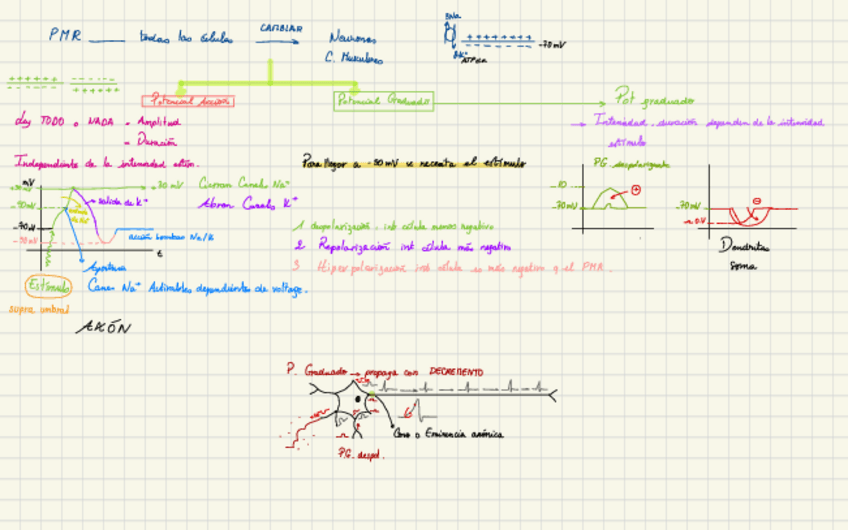 PMR todas las células CAMBIAR Neuronas
C. Musculares
3Na+
2K+
ATPasa
-70mV
+++++++ -------
------- +++++++
Potencial Acción
Potencial Graduado
Pot graduado
Ley TODO o NADA - Amplitud
- Duración
Independiente de la intensidad estím.
→ Intensidad, duración dependen de la intensidad
estímulo
Para llegar a -50 mV se necesita el estímulo
PG despolarizante
mV
+30mV
-50mV
-70mV
-90mV
30 mV Cierran Canales Na+
Abren Canales K+
salida de K+
acción bombas Na/K
t
Apertura
Canes Na+ Activables dependientes de voltage.
Estímulo
supra umbral
AXÓN
1 despolarización. int célula menos negativo
2. Repolarización int célula más negativo
3 Hiperpolarización int célula es más negativo q el PMR.
-70mV
-70mV
Dendritas
soma
P. Graduado → propaga con DECREMENTO
Cono o Eminencia axónica
P.G. despol.